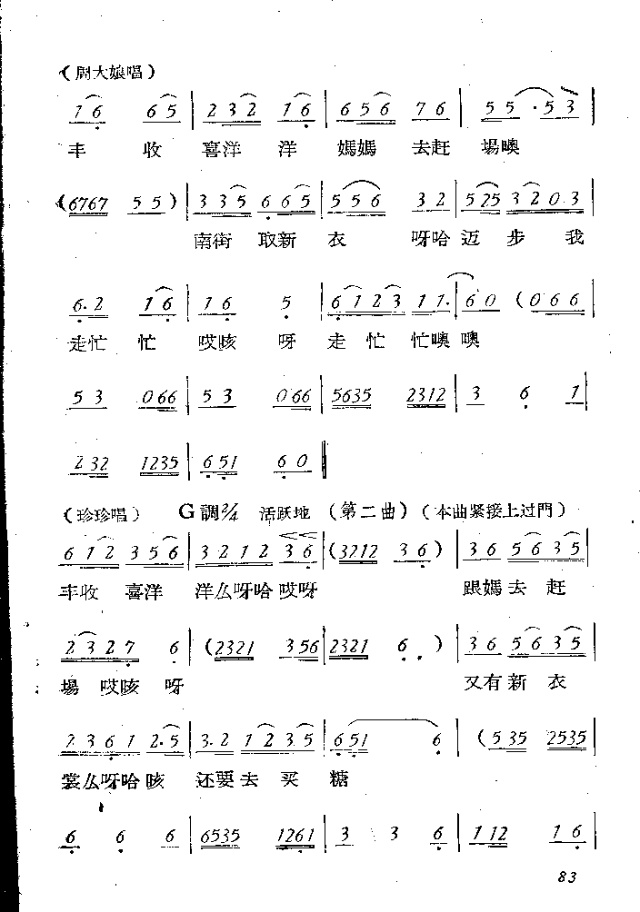 （周大娘唱）
1 6 6 5 | 2 3 2 1 6 | 6 5 6 7 6 | 5 5 · 5 3 |
丰 收 喜洋 洋 媽媽 去赶 場噢
（6767 5 5 ） | 3 3 5 6 6 5 | 5 5 6 3 2 | 525 3 2 0 3 |
南街 取新 衣 呀哈 迈 步 我
6·2 1 6 | 1 6 5 | 6 1 2 3 1 1· | 6 0 （0 6 6 |
走忙 忙 哎咳 呀 走 忙 忙噢 噢
5 3 066 | 5 3 066 | 5635 2312 | 3 6 1 |
2 32 1235 | 6 51 6 0 ‖
（珍珍唱） G調2/4 活跃地 （第二曲）（本曲紧接上过門）
6 1 2 3 5 6 | 3 2 1 2 3 6 | （3212 3 6 ） | 3 6 5 6 3 5 |
丰收 喜洋 洋么呀哈 哎呀 跟媽 去 赶
2 3 2 7 6 | （2321 3 56 | 2321 6 · ） | 3 6 5 6 3 5 |
場 哎咳 呀 又有 新 衣
2 3 6 1 2·5 | 3·2 1 2 3 5 | 6 51 6 | （5 35 2535 |
裳么呀哈 咳 还要 去 买 糖
6 6 6 | 6535 1261 | 3 3 6 | 1 12 1 6 |
83